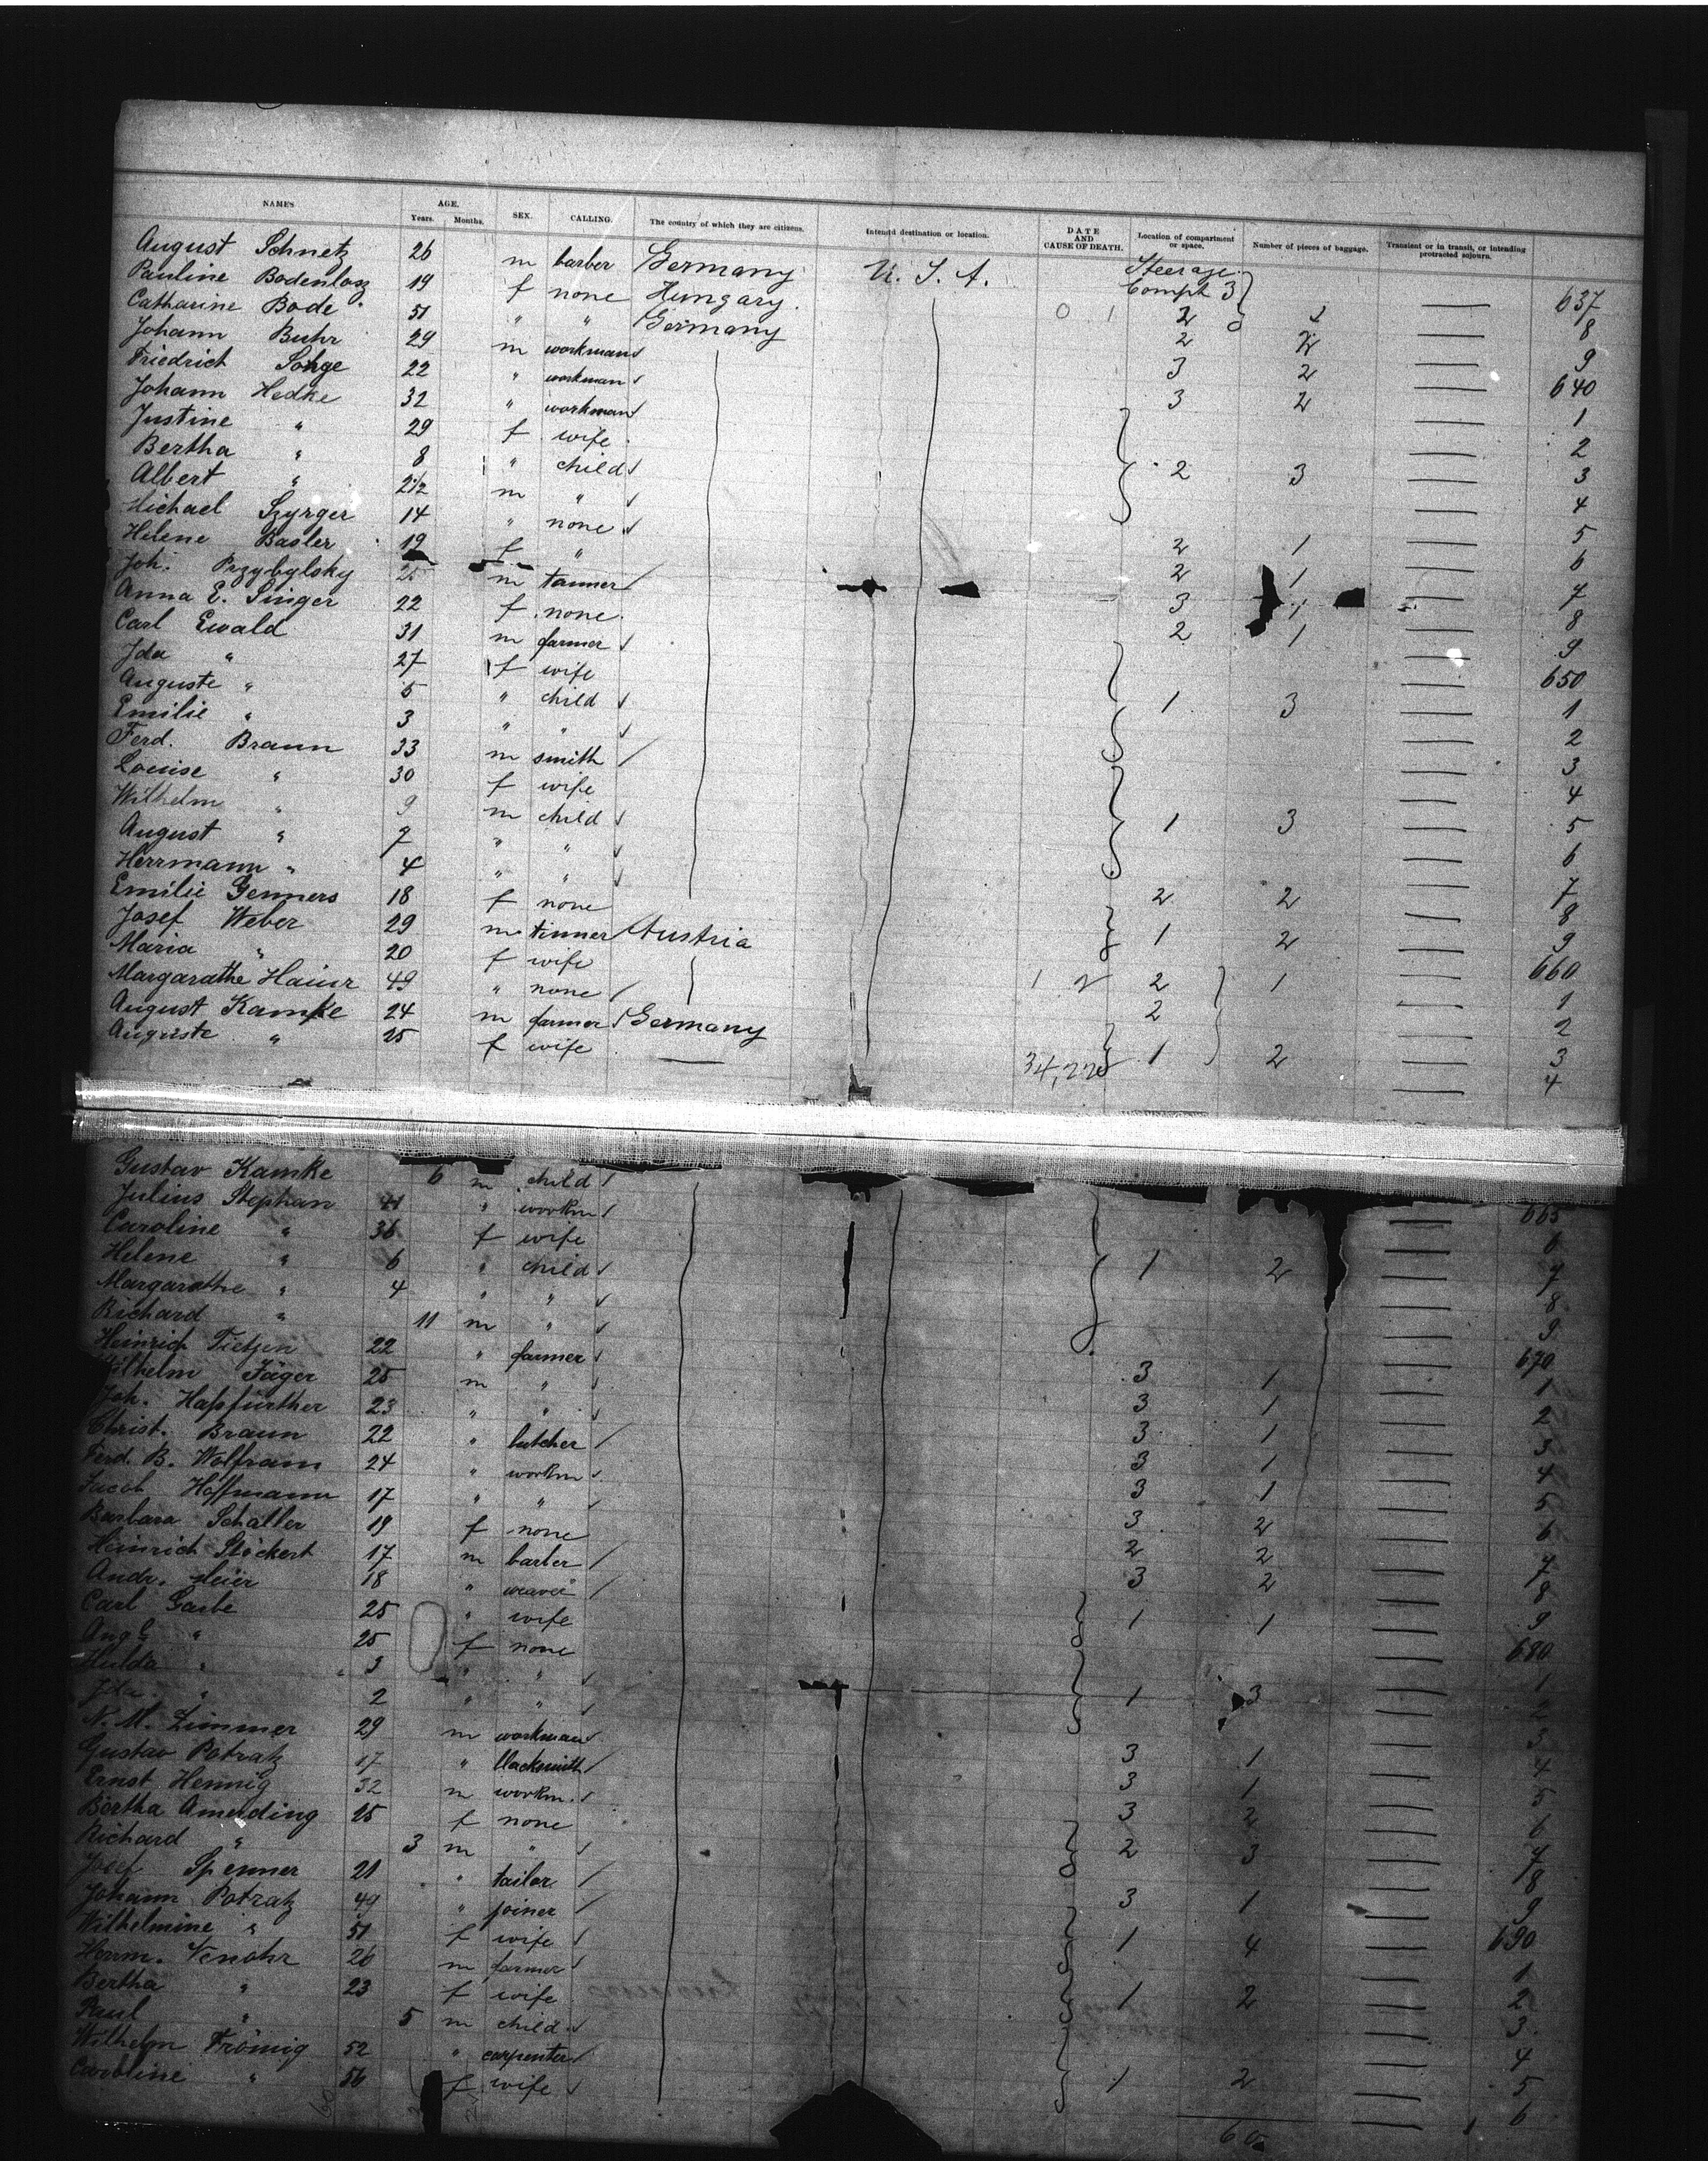 NAMES AGE. Years. Months. SEX. CALLING. The country of which they are citizens. Intended destination or location. DATE AND CAUSE OF DEATH. Location of compartment or space. Number of pieces of baggage. Transient or in transit, or intending protracted sojourn.
August Schnetz 26 m barber Germany U.S.A. Steerage 637
Pauline Bodenlosz 19 f none Hungary. Compt 3 8
Catharine Bode 51 " " Germany 2 9
Johann Buhr 29 m workman 3 2 640
Friedrich Sohge 22 " workman 3 2 1
Johann Hedke 32 " workman 2
Justine " 29 f wife 3
Bertha " 8 " child 2 3 4
Albert " 2 1/2 m " 5
Michael Szyrger 14 " none 2 1 6
Helene Basler 19 f " 2 1 7
Joh. Przybylsky 25 m tanner 3 1 8
Anna E. Singer 22 f none 2 1 9
Carl Ewald 31 m farmer 650
Ida " 27 f wife 1
Auguste " 5 " child 1 3 2
Emilie " 3 " " 3
Ferd. Braun 33 m smith 4
Louise " 30 f wife 5
Wilhelm " 9 m child 1 3 6
August " 7 " " 7
Herrmann " 4 " " 8
Emilie Genners 18 f none 2 2 9
Josef Weber 29 m tinner Austria 1 2 660
Maria " 20 f wife 1
Margarathe Haiur 49 " none 2 1 2
August Kamke 24 m farmer Germany 2 3
Auguste " 25 f wife 1 2 4
Gustav Kamke 6 m child 665
Julius Stephan 41 " workm 6
Caroline " 36 f wife 7
Helene " 6 " child 1 2 8
Margarathe " 4 " " 9
Richard " 11 m " 670
Heinrich Tietzen 22 " farmer 3 1 1
Wilhelm Jäger 25 m " 3 1 2
Joh. Hapfürther 23 " " 3 1 3
Christ. Braun 22 " butcher 3 1 4
Ferd. B. Wolfram 24 " workm 3 1 5
Jacob Hoffmann 17 " " 3 2 6
Barbara Schaller 19 f none 2 2 7
Heinrich Stöckert 17 m barber 3 2 8
Andr. Meier 18 " weaver 9
Carl Garbe 25 " wife 1 1 680
Aug. " 25 f none 1
Hulda " 3 " " 2
Ida " 2 " " 1 3 3
N. M. Zimmer 29 m workman 3 1 4
Gustav Potratz 17 " blacksmith 3 1 5
Ernst Hennig 32 m workm. 3 2 6
Bertha Amerding 25 f none 2 3 7
Richard " 3 m " 8
Josef Spenner 21 " tailor 3 1 9
Johann Potratz 49 " joiner 1 4 690
Wilhelmine " 51 f wife 1
Herrm. Venohr 26 m farmer 2
Bertha " 23 f wife 1 2 3
Paul " 5 m child 4
Wilhelm Frömig 52 " carpenter 5
Caroline " 56 f wife 1 2 6